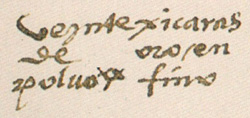 veynte xicaras
de oro en
polvo fino